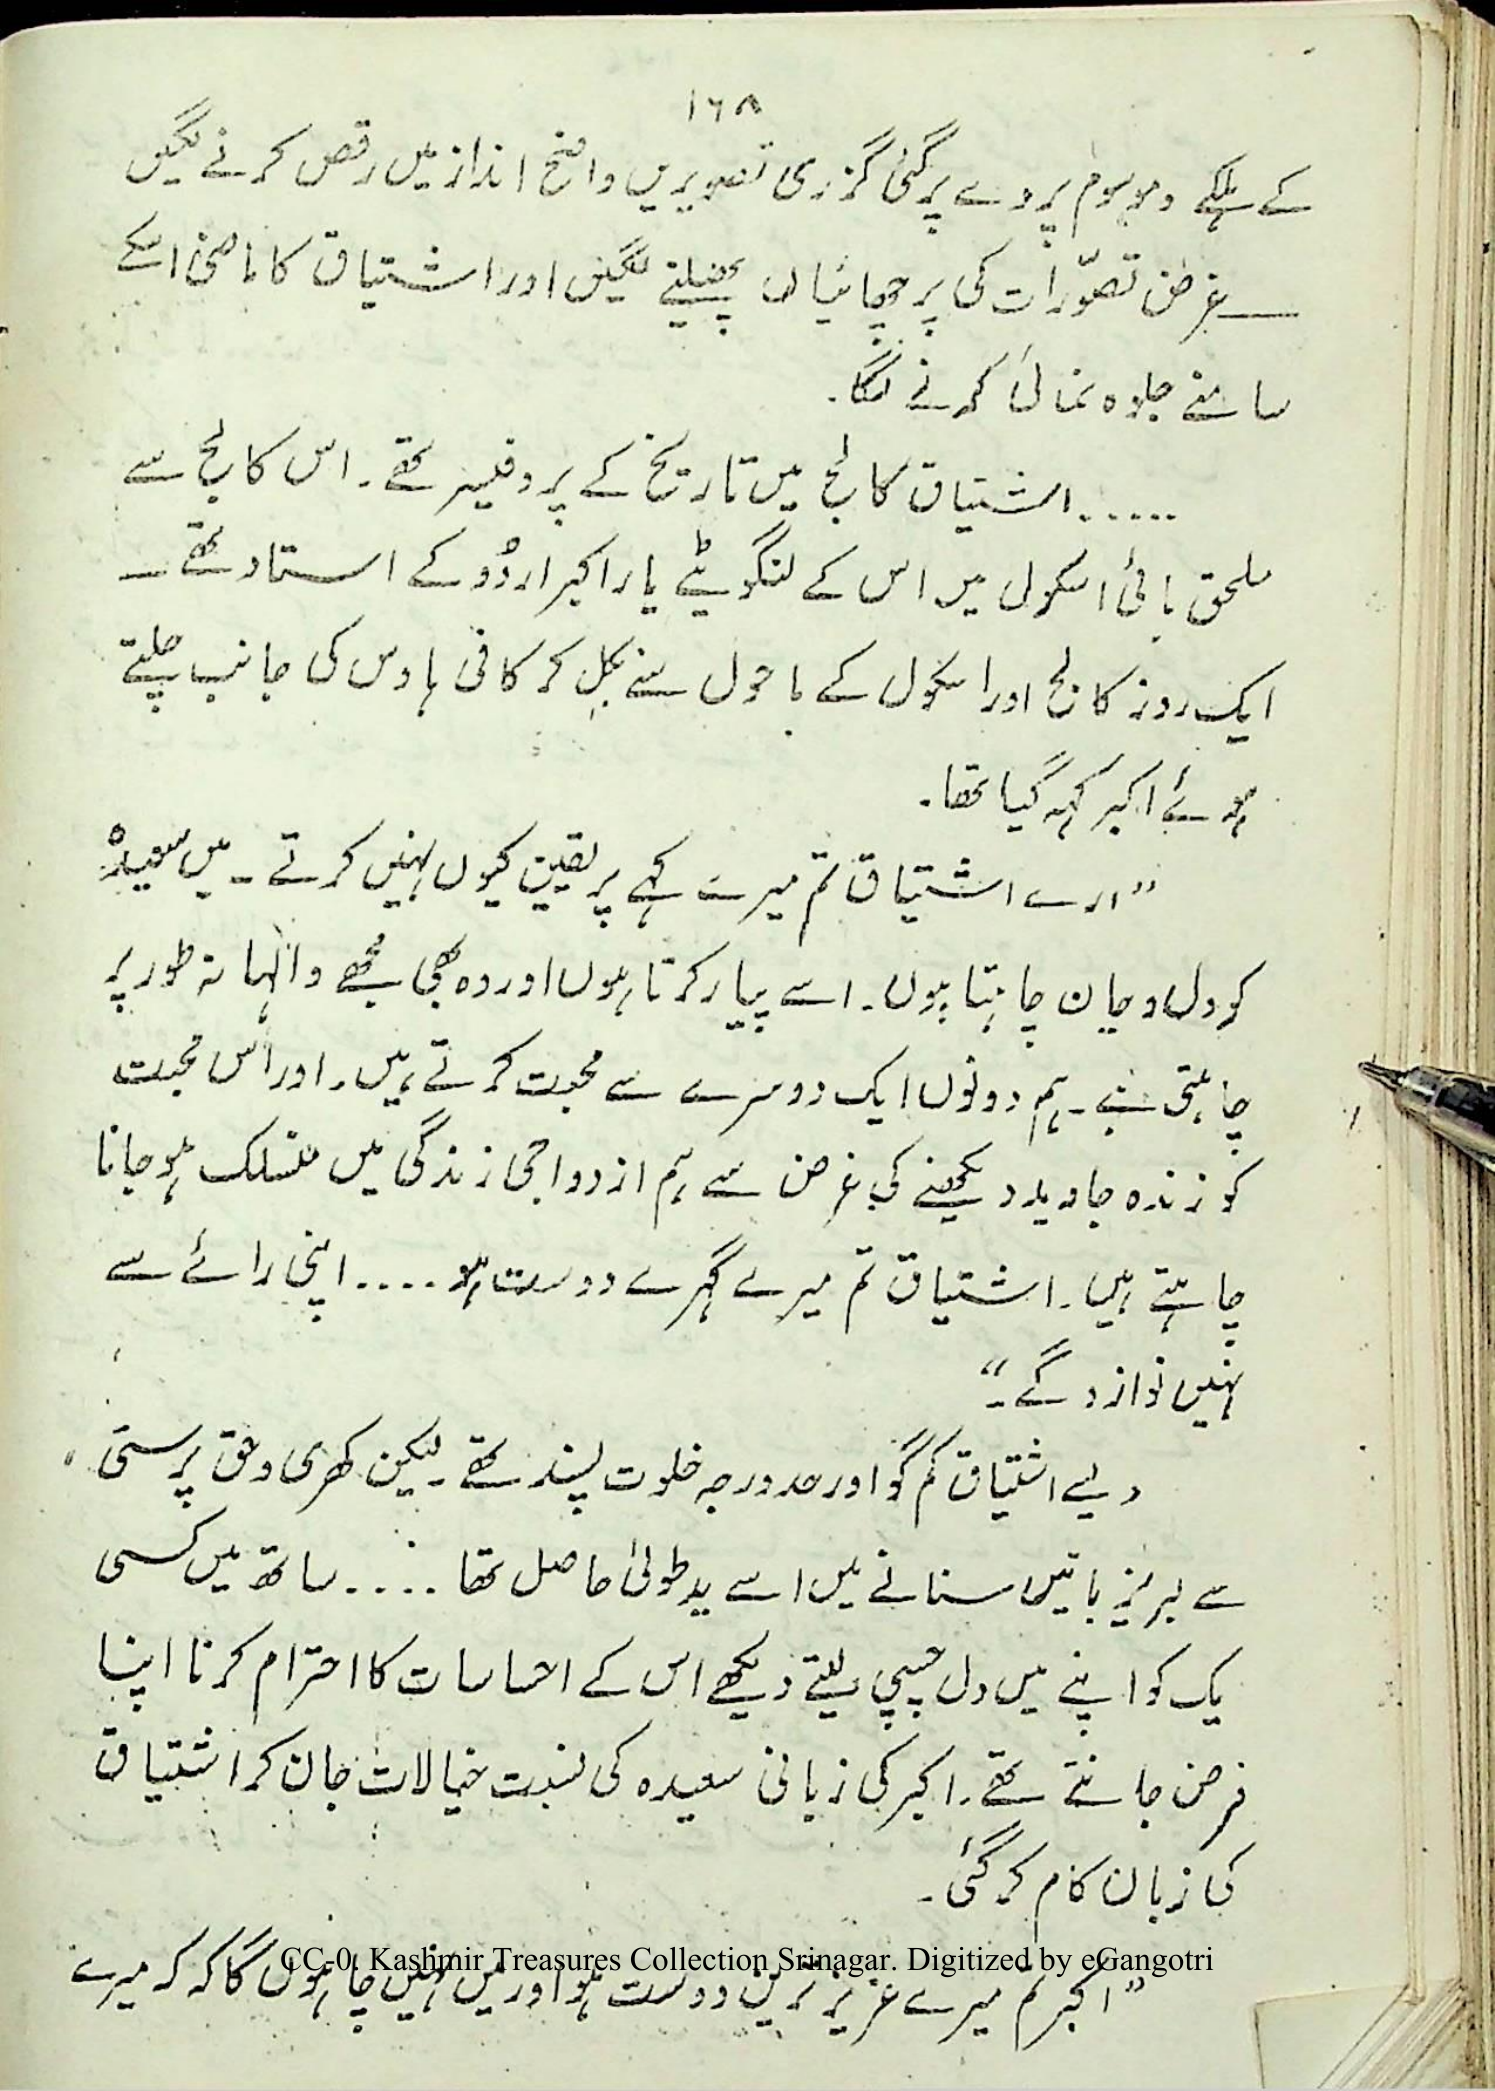 ۱۶۸
کے ہلکے و موہوم پردے پر گئی گزری تصویریں واضح انداز میں رقص کرنے لگیں
ــــ غرض تصوّرات کی پرچھائیاں پھیلنے لگیں اور اشتیاق کا ماضی اسکے
سامنے جلوہ نمائی کرنے لگا۔
...... اشتیاق کالج میں تاریخ کے پروفیسر تھے۔ اس کالج سے
ملحق ہائی اسکول میں اس کے لنگوٹیے یار اکبر اردُو کے استاد تھے ــ
ایک روز کالج اور اسکول کے ماحول سے نکل کر کافی ہاوس کی جانب چلتے
ہوئے اکبر کہہ گیا تھا۔
”ارے اشتیاق تم میرے کہے پر یقین کیوں نہیں کرتے ۔ میں سعیدہ
کو دل و جان چاہتا ہوں۔ اسے پیار کرتا ہوں اور وہ بھی مُجھے والہانہ طور پر
چاہتی ہے۔ ہم دونوں ایک دوسرے سے محبت کرتے ہیں۔ اور اُس محبت
کو زندہ جاوید دیکھنے کی غرض سے ہم ازدواجی زندگی میں منسلک ہو جانا
چاہتے ہیں۔ اشتیاق تم میرے گہرے دوست ہو .... اپنی رائے سے
نہیں نوازو گے۔“
ویسے اشتیاق کم گو اور حد درجہ خلوت پسند تھے ۔ لیکن کھری و حق پرستی
سے لبریز باتیں سنانے میں اسے یدِ طولیٰ حاصل تھا .... ساتھ میں کسی
یک کو اپنے میں دل چسپی لیتے دیکھے اس کے احساسات کا احترام کرنا اپنا
فرض جانتے تھے۔ اکبر کی زبانی سعیدہ کی نسبت خیالات جان کر اشتیاق
کی زبان کام کر گئی۔
”اکبر تم میرے عزیز ترین دوست ہو اور میں نہیں چاہوں گا کہ کہ میرے
CC-0. Kashmir Treasures Collection Srinagar. Digitized by eGangotri